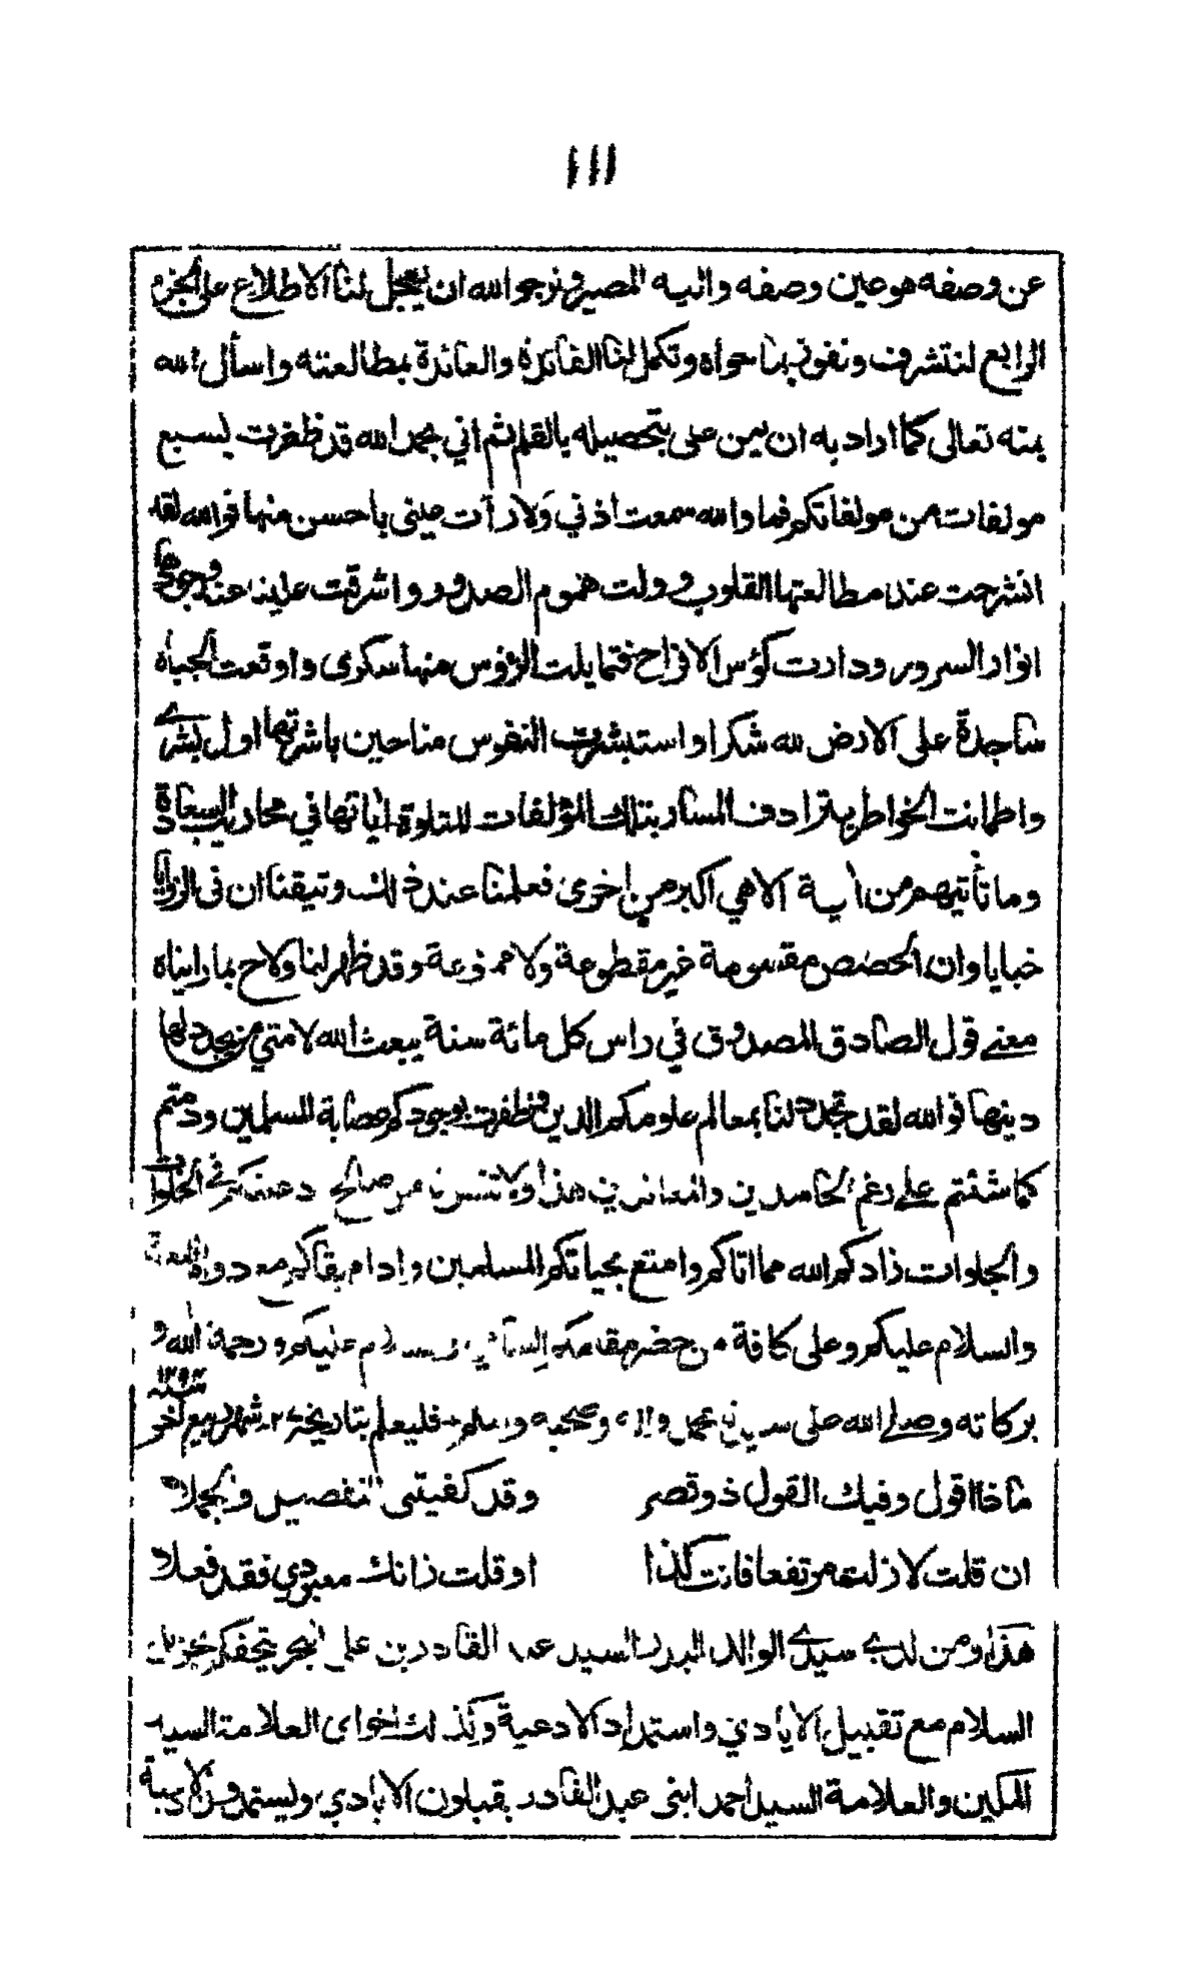 ١١١
عن وصفه هو عين وصفه واليه المصير ونرجو الله ان يعجل لنا الاطلاع على الجزء
الرابع لنتشرف ونفوز بما حواه وتكمل لنا الفائدة والعائدة بمطالعته واسأل الله
بمنه تعالى كما اراد به ان يمن على بتحصيله بالقلم ثم اني بحمد الله قد ظفرت بسبع
مولفات من مولفاتكم فما والله سمعت اذني ولا رأت عيني باحسن منها فوالله لقد
انشرحت عند مطالعتها القلوب وولت هموم الصدور واشرقت علينا عند وجودها
انوار السرور ودارت كؤس الافراح فتمايلت الرؤس منها سكرى واوقعت الجباه
ساجدة على الارض لله شكرا واستبشرت النفوس منا حين باشرتها اول بشرى
واطمانت الخواطر بترادف المسار بتلك المؤلفات المتلوة اياتها في محاريب السعادة
وما تأتيهم من اية الا هي اكبر من اخرى فعلمنا عند ذلك وتيقنا ان في الزوايا
خبايا وان الحصص مقسومة غير مقطوعة ولا ممنوعة وقد ظهر لنا ولاح بما رايناه
معنى قول الصادق المصدوق في راس كل مائة سنة يبعث الله لامتي من يجدد لها
دينها فوالله لقد تجدد لنا بمعالم علومكم الدين وظفرت بوجودكم عصابة المسلمين ودمتم
كما شئتم على رغم الحاسدين والمعاندين هذا ولا تنسونا من صالح دعتكم في الخلوات
والجلوات زادكم الله مما اتاكم وامتع بحياتكم المسلمين وادام بقاكم
والسلام عليكم وعلى كافة من حضر مقامكم السامي والسلام عليكم ورحمة الله و
بركاته وصلى الله على سيدنا محمد واله وصحبه وسلم فليعلم بتاريخه شهر ربيع اخر
ماذا اقول وفيك القول ذو قصر وقد كفيتنى التفصيل والجملا
ان قلت لا زلت مرتفعا فانت كذا او قلت زانك معبودي فقد فعلا
هذا ومن لدى سيدى الوالد البدر السيد عبد القادر بن على البحر يتحفكم بجزيل
السلام مع تقبيل الايادي واستمداد الادعية وكذلك اخواى العلامة السيد
المكين والعلامة السيد احمد ابنى عبد القادر يقبلون الايادي ويستمدون الادعية